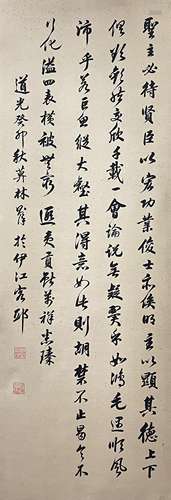 聖主必待賢臣以宏功業俊士亦俟明主以顯其德上下
俱欲歡然交欣千載一會論說無疑翼乎如鴻毛遇順風
沛乎若巨魚縱大壑其得意如此則胡禁不止曷令不
行化溢四表橫被無窮遐夷貢獻萬祥畢溱
道光癸卯秋莫林於伊江寓邸